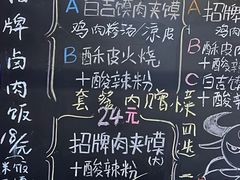 招牌卤肉饭18元
A 白吉馍肉夹馍
鸡肉粉汤/凉皮
B 酥皮火烧
+酸辣粉
套餐内赠
24元
招牌肉夹馍(大)
+酸辣粉
A 招牌
鸡
B 酥
+酸
C 白吉
+酸
四选一